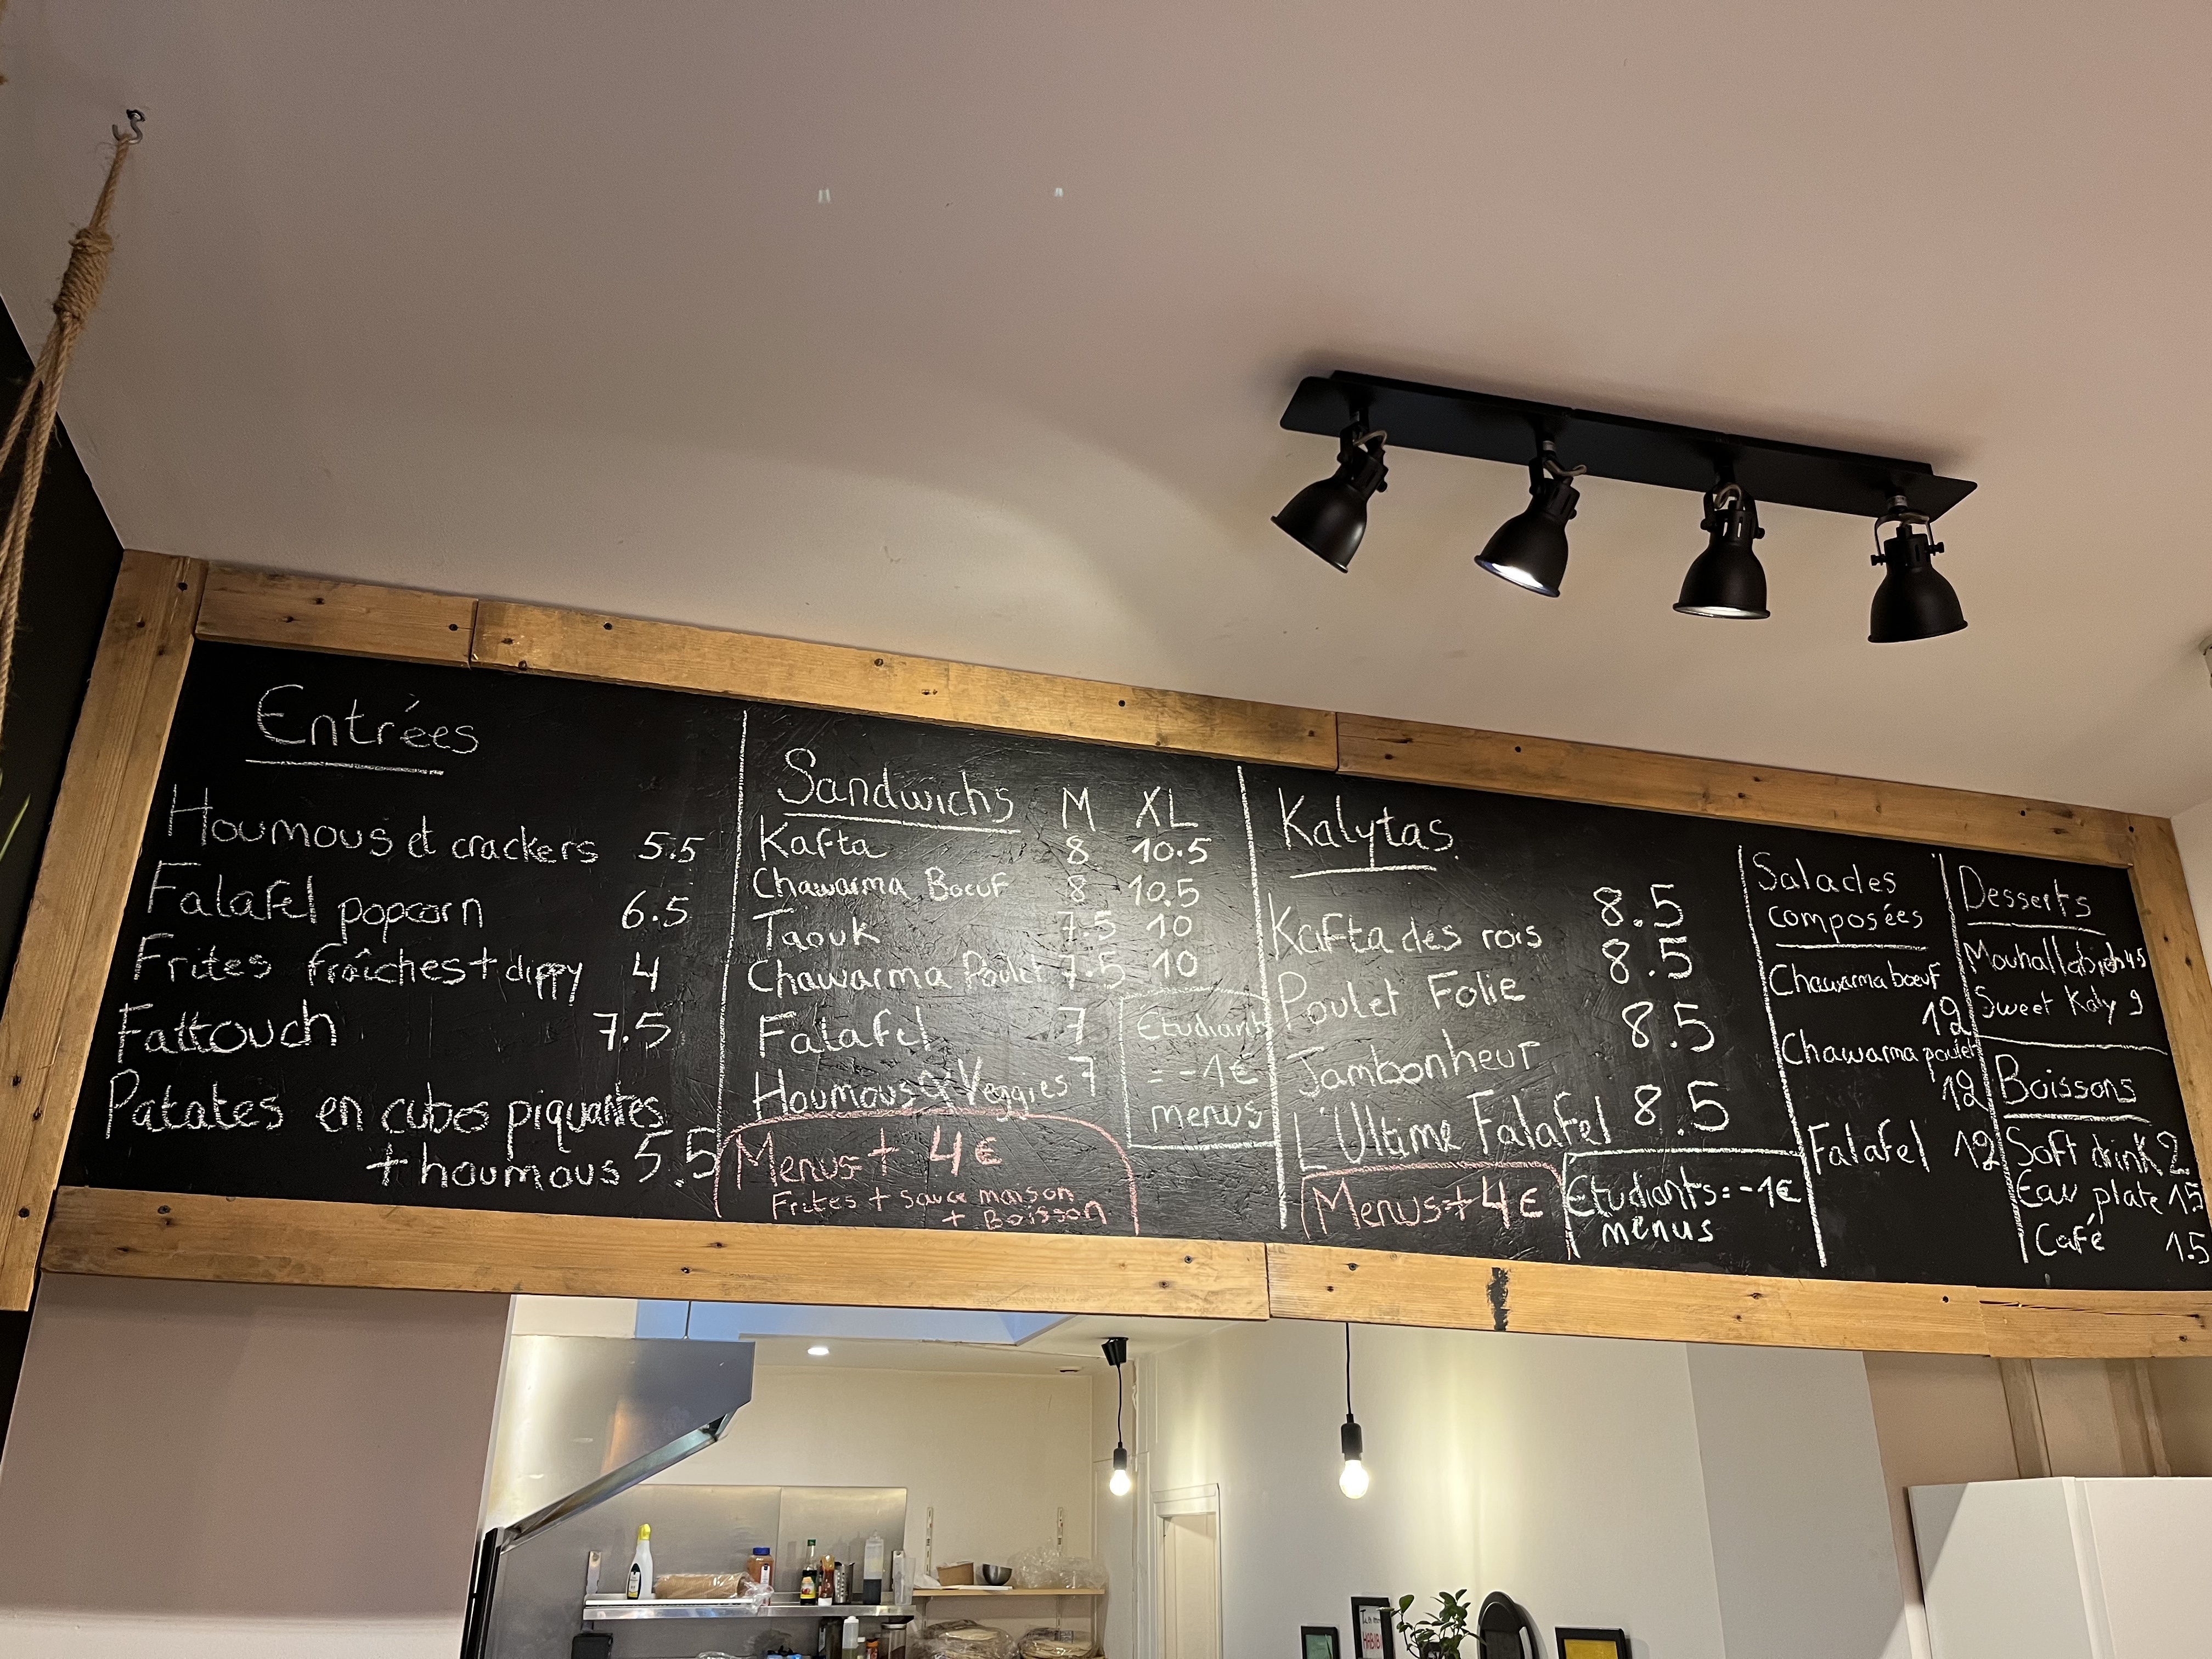 Entrées
Houmous et crackers 5.5
Falafel popcorn 6.5
Frites fraîches + dippy 4
Fattouch 7.5
Patates en cubes piquantes
+ houmous 5.5
Sandwichs M XL
Kafta 8 10.5
Chawarma Boeuf 8 10.5
Taouk 7.5 10
Chawarma Poulet 7.5 10
Falafel 7
Houmous & Veggies 7
Etudiant
= -1€
menus
Menus + 4€
Frites + sauce maison
+ Boisson
Kalytas
Kafta des rois 8.5
Poulet Folie 8.5
Jambonheur 8.5
L'Ultime Falafel 8.5
Menus + 4€
Etudiants = -1€
menus
Salades
composées
Chawarma boeuf
12
Chawarma poulet
12
Falafel 12
Desserts
Mouhallabieh 4.5
Sweet Kaly 9
Boissons
Soft drink 2
Eau plate 1.5
Café 1.5
HABIBI